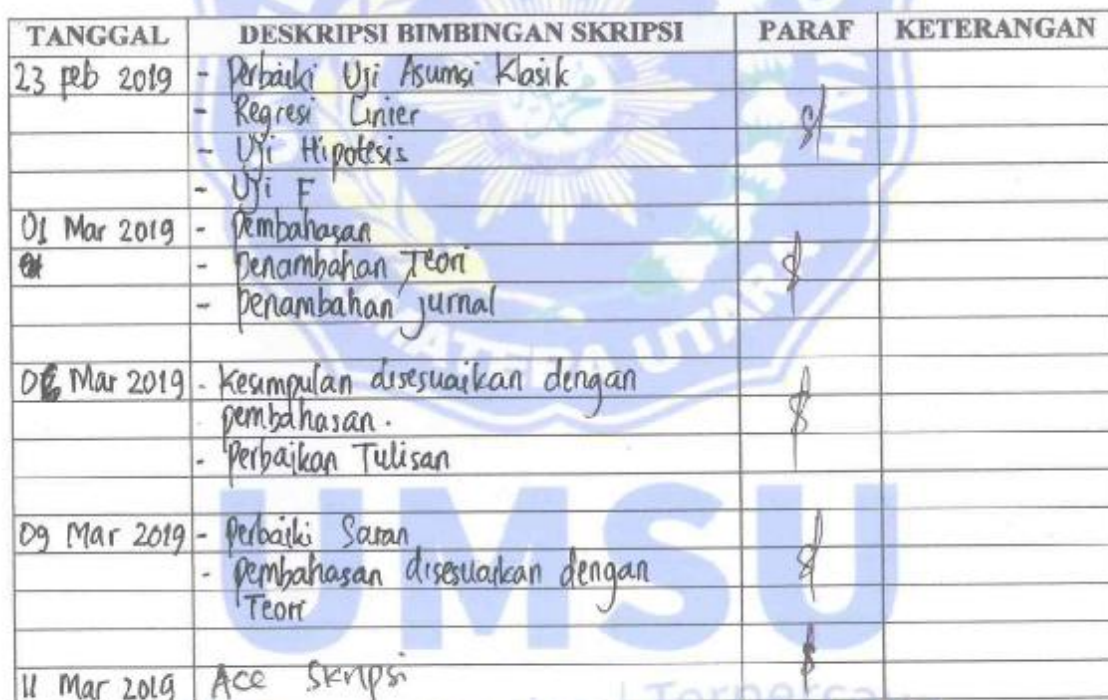 TANGGAL DESKRIPSI BIMBINGAN SKRIPSI PARAF KETERANGAN
23 feb 2019 - Perbaiki Uji Asumsi Klasik
- Regresi Linier
- Uji Hipotesis
- Uji F
01 Mar 2019 - Pembahasan
- penambahan Teori
- penambahan jurnal
Mar 2019 - Kesimpulan disesuaikan dengan
pembahasan.
- Perbaikan Tulisan
09 Mar 2019 - Perbaiki Saran
- pembahasan disesuaikan dengan
Teori
11 Mar 2019 Acc Skripsi
UMSU